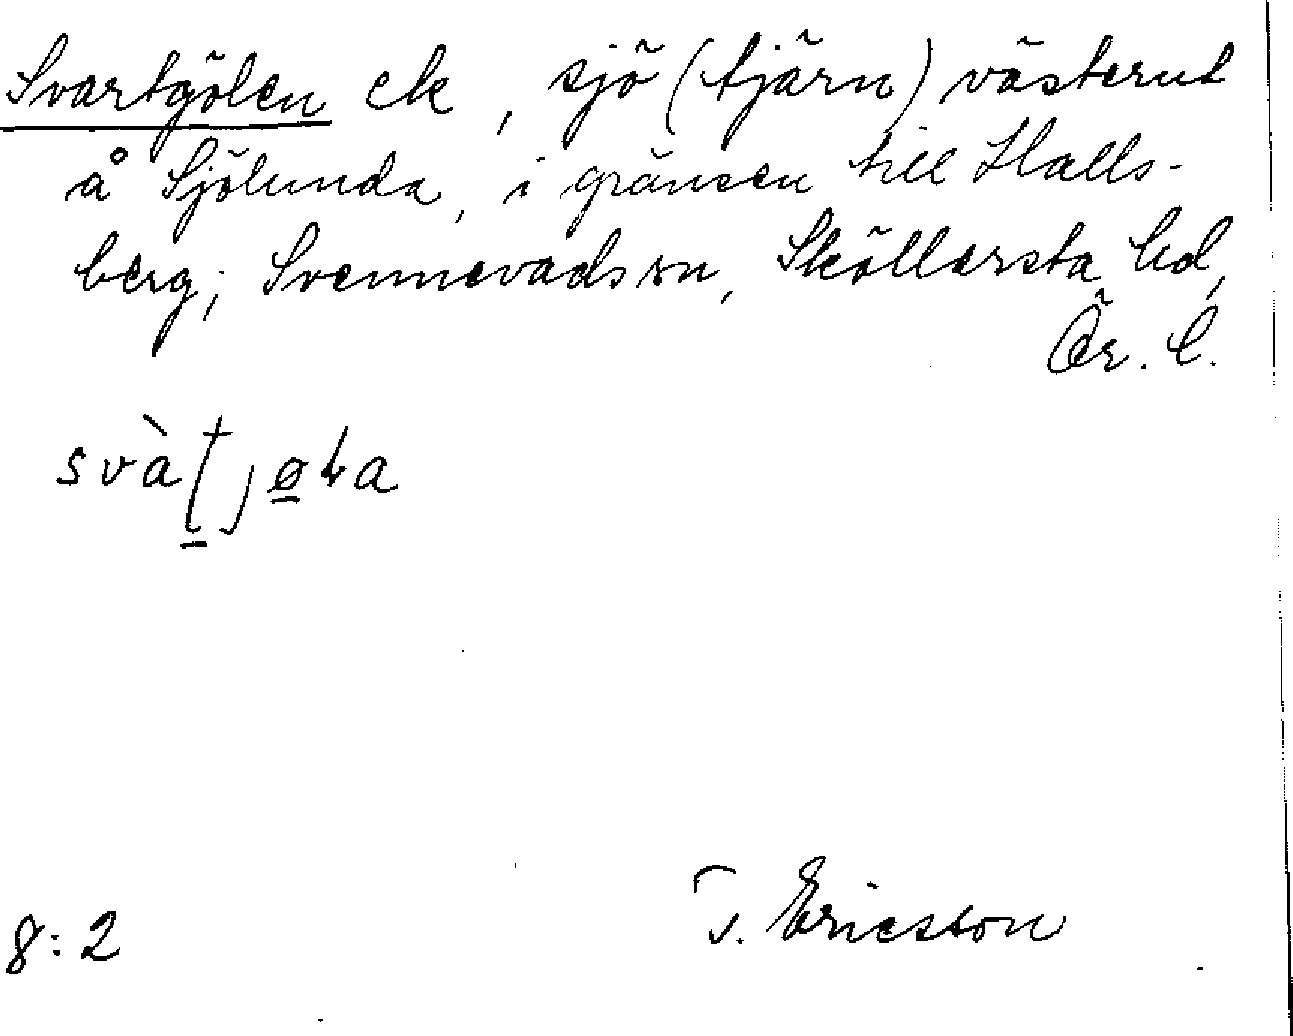 Svartgölen ek, sjö (tjärn) västerut
å Sjölunda, i gränsen till Halls-
berg; Svennevads sn, Sköllersta hd,
Ör. l.
svàʈjøɬa
8:2
T. Ericsson